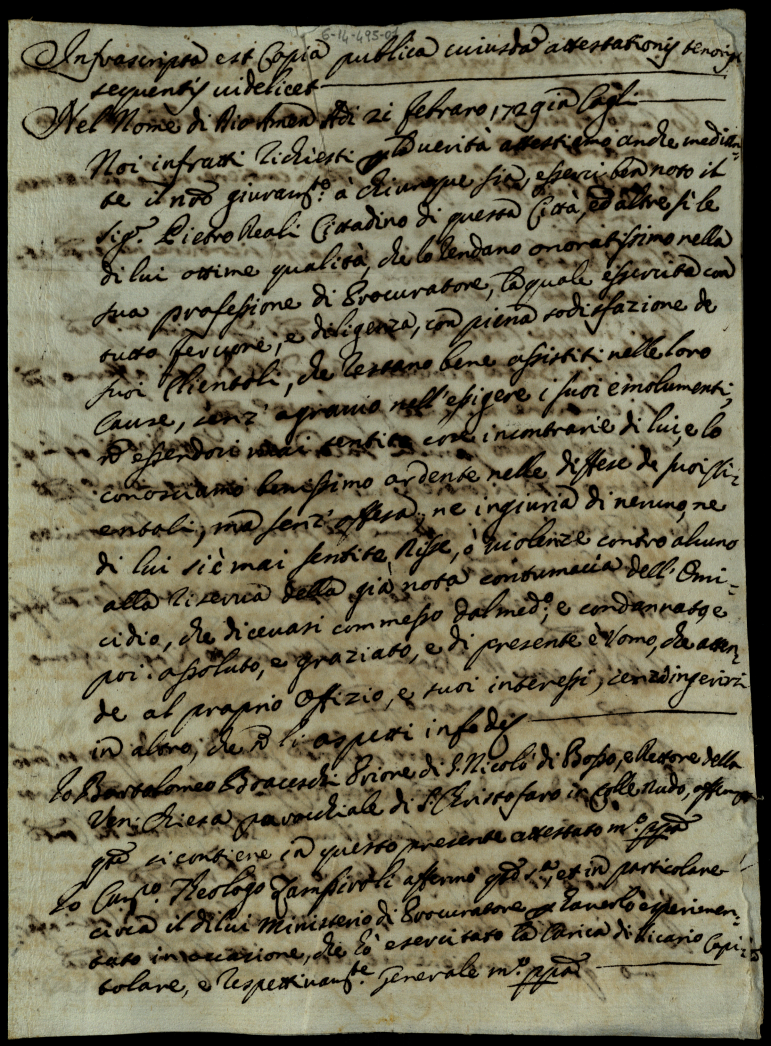 6-14-495-0
Infrascripta est Copia publica cuiusdã attestationis tenoris
sequentis videlicet
Nel Nome di Dio Amen Adi 21 febraro 1729 in Cagli
Noi infratti richiesti p la verità attestiamo anche median-
te il nro giuramto. à chiunque sia, esserci ben noto il
Sigr. Pietro Reali Cittadino di questa Città, ed altre sì le
di lui ottime qualità, che lo rendano onoratissimo nella
sua professione di Procuratore, la quale essercita con
tutto fervore, e diligenza, con piena sodisfazione de
suoi Clientoli, che restano bene assistiti nelle loro
Cause, senz' agravio nell' essigere i suoi emolumenti,
nõ essendosi mai sentite cose incontrarie di lui, e lo
conosciamo benissimo ardente nelle diffese de suoi Cli-
entoli, mà senz' offesa, ne ingiuria di neruno, ne
di lui si è mai sentite, Risse, ò violenze contro alcuno
alla riserva della già nota contumacia dell' Omi-
cidio, che dicevasi commesso dal medo., e condannato, e
poi assoluto, e graziato, e di presente è Uomo, che atten-
de al proprio Offizio, e suoi interessi, senz' ingerirsi
in altro, che nõ li aspetti in fede
Io Bartolomeo Braceschi Priore di S. Nicolò di Bosso, e Rettore della
Ven: Chiesa parochiale di S. Christofaro in Colle Nudo, affermo
qto si contiene in questo presente attestato mo. ppa
Io Canco. Teologo Zampiroli affermo qto sa., et in particolare
circa il di lui Ministerio di Procuratore p haverlo esperimen-
tato in occasione, che hò esercitato la Carica di Vicario Capi-
tolare, e respettivamte. Generale mo. ppa